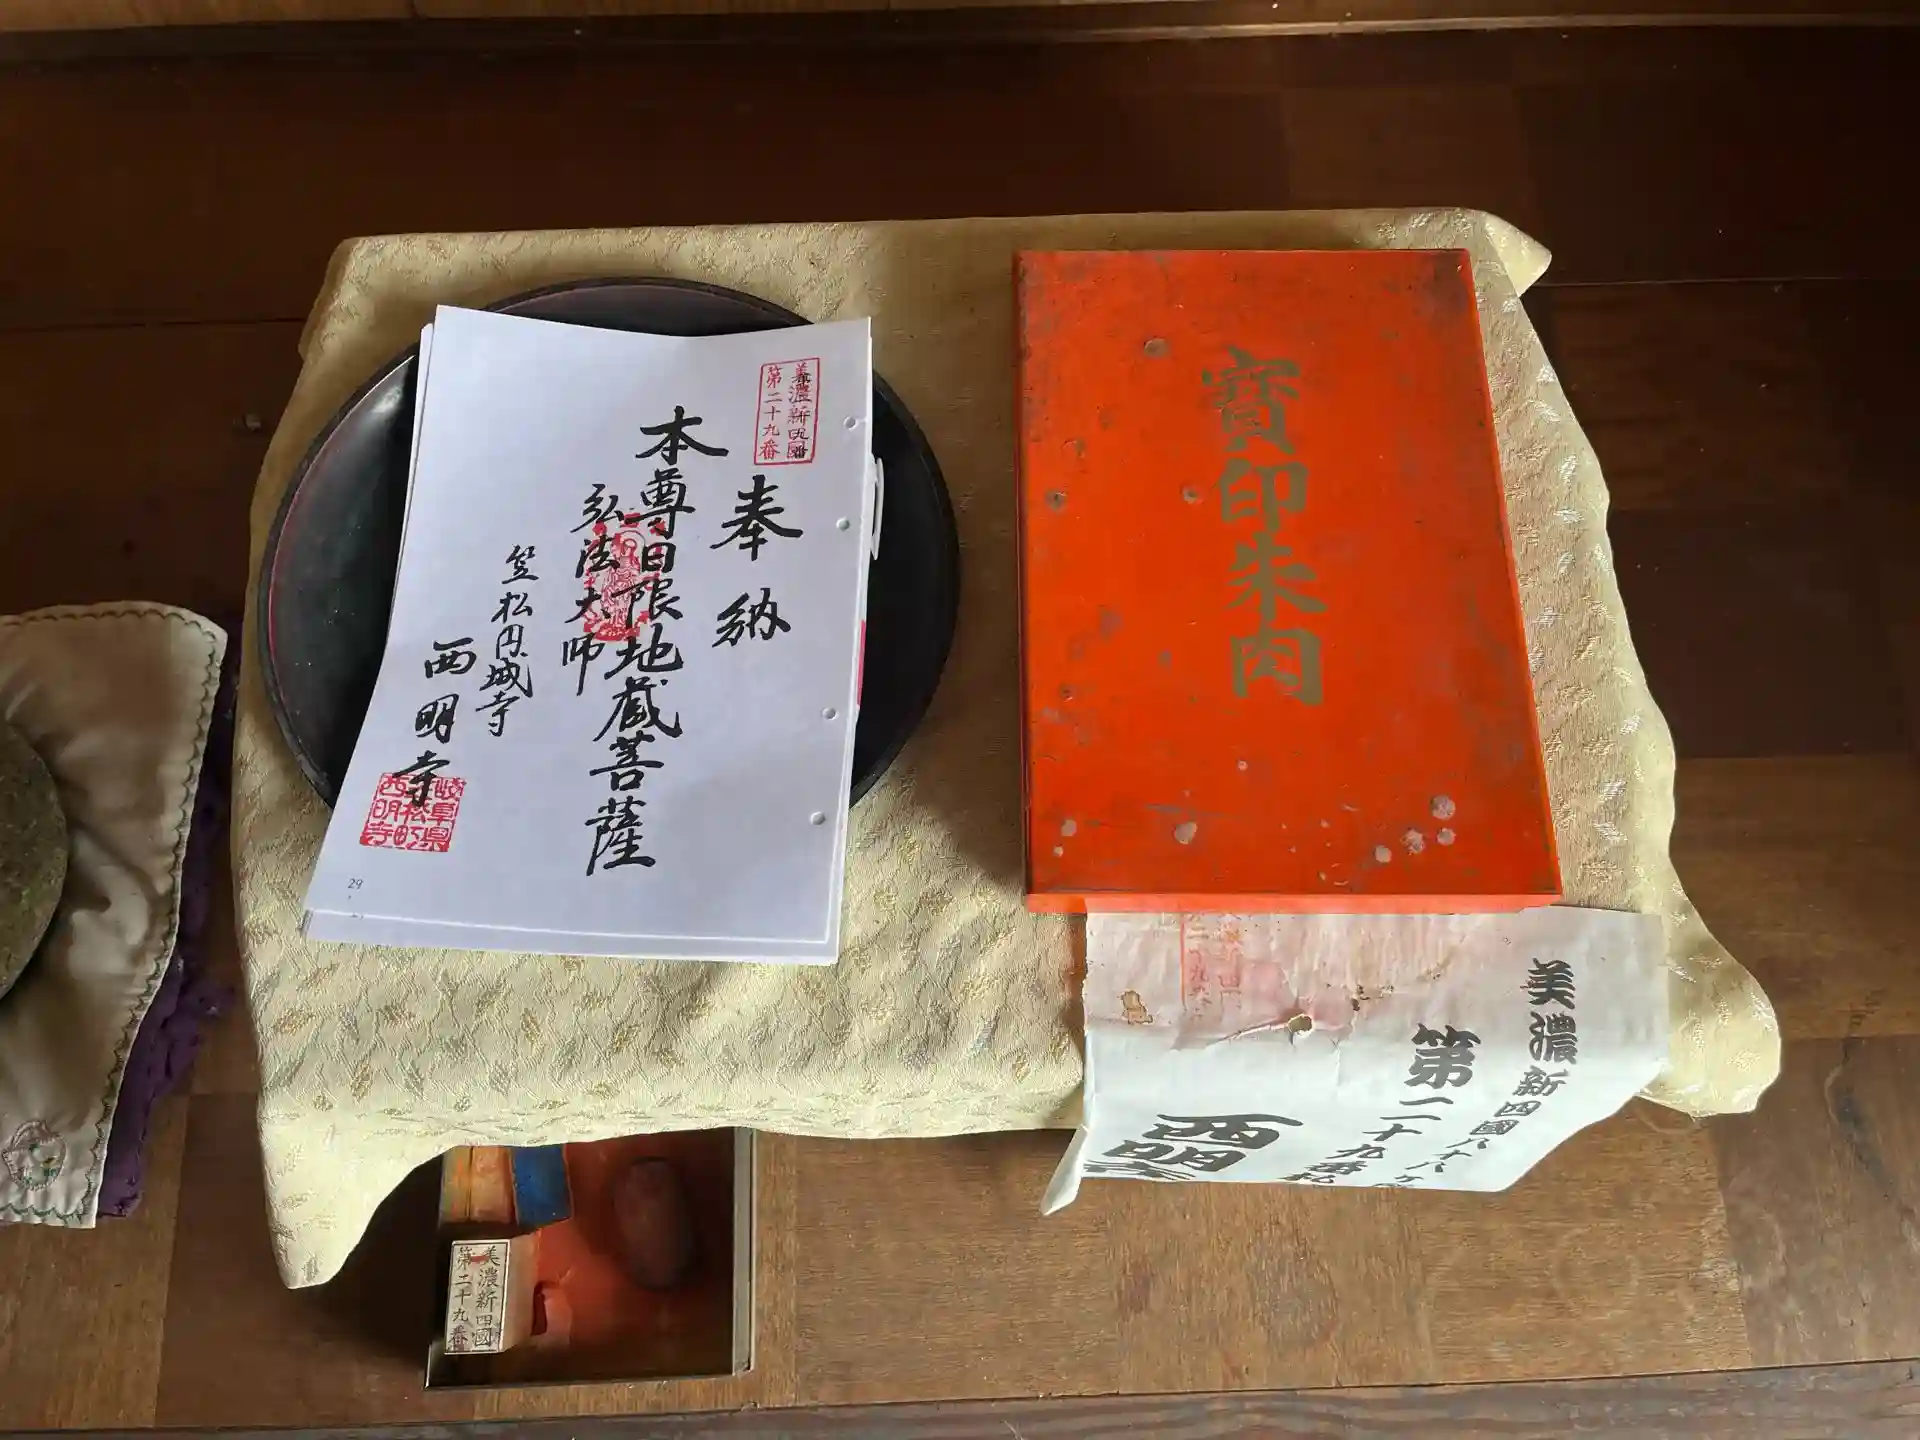 美濃新四國
第二十九番
奉納
本尊日限地蔵菩薩
弘法大師
笠松円城寺
西明寺
岐阜県
松町
西明寺
29
寶印朱肉
美濃新四國八十八ヶ
第二十九番札
西明
美濃新四國
第二十九番